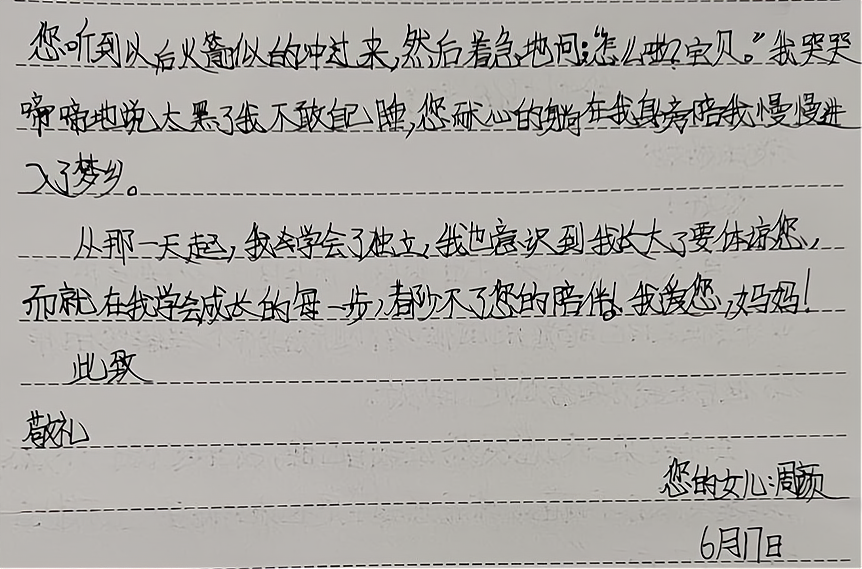 您听到以后火箭似的冲过来,然后着急地问:“怎么啦?宝贝。”我哭哭
啼啼地说太黑了我不敢自己睡,您耐心的躺在我身旁陪我慢慢进
入了梦乡。
从那一天起,我学会了独立,我也意识到我长大了要体谅您,
而就在我学会成长的每一步,都少不了您的陪伴!我爱您,妈妈!
此致
敬礼
您的女儿:周颜
6月17日